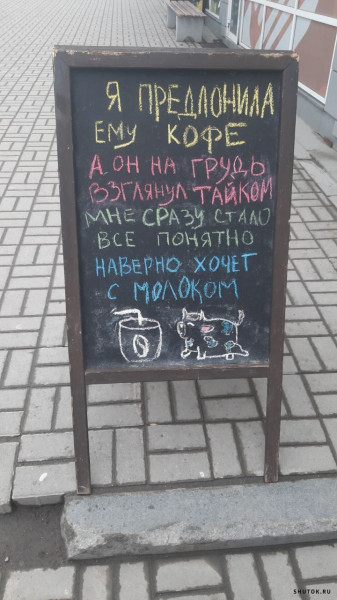 Я ПРЕДЛОНИЛА
ЕМУ КОФЕ
А ОН НА ГРУДЬ
ВЗГЛЯНУЛ ТАЙКОМ
МНЕ СРАЗУ СТАЛО
ВСЕ ПОНЯТНО
НАВЕРНО ХОЧЕТ
С МОЛОКОМ
SHOTOK.RU